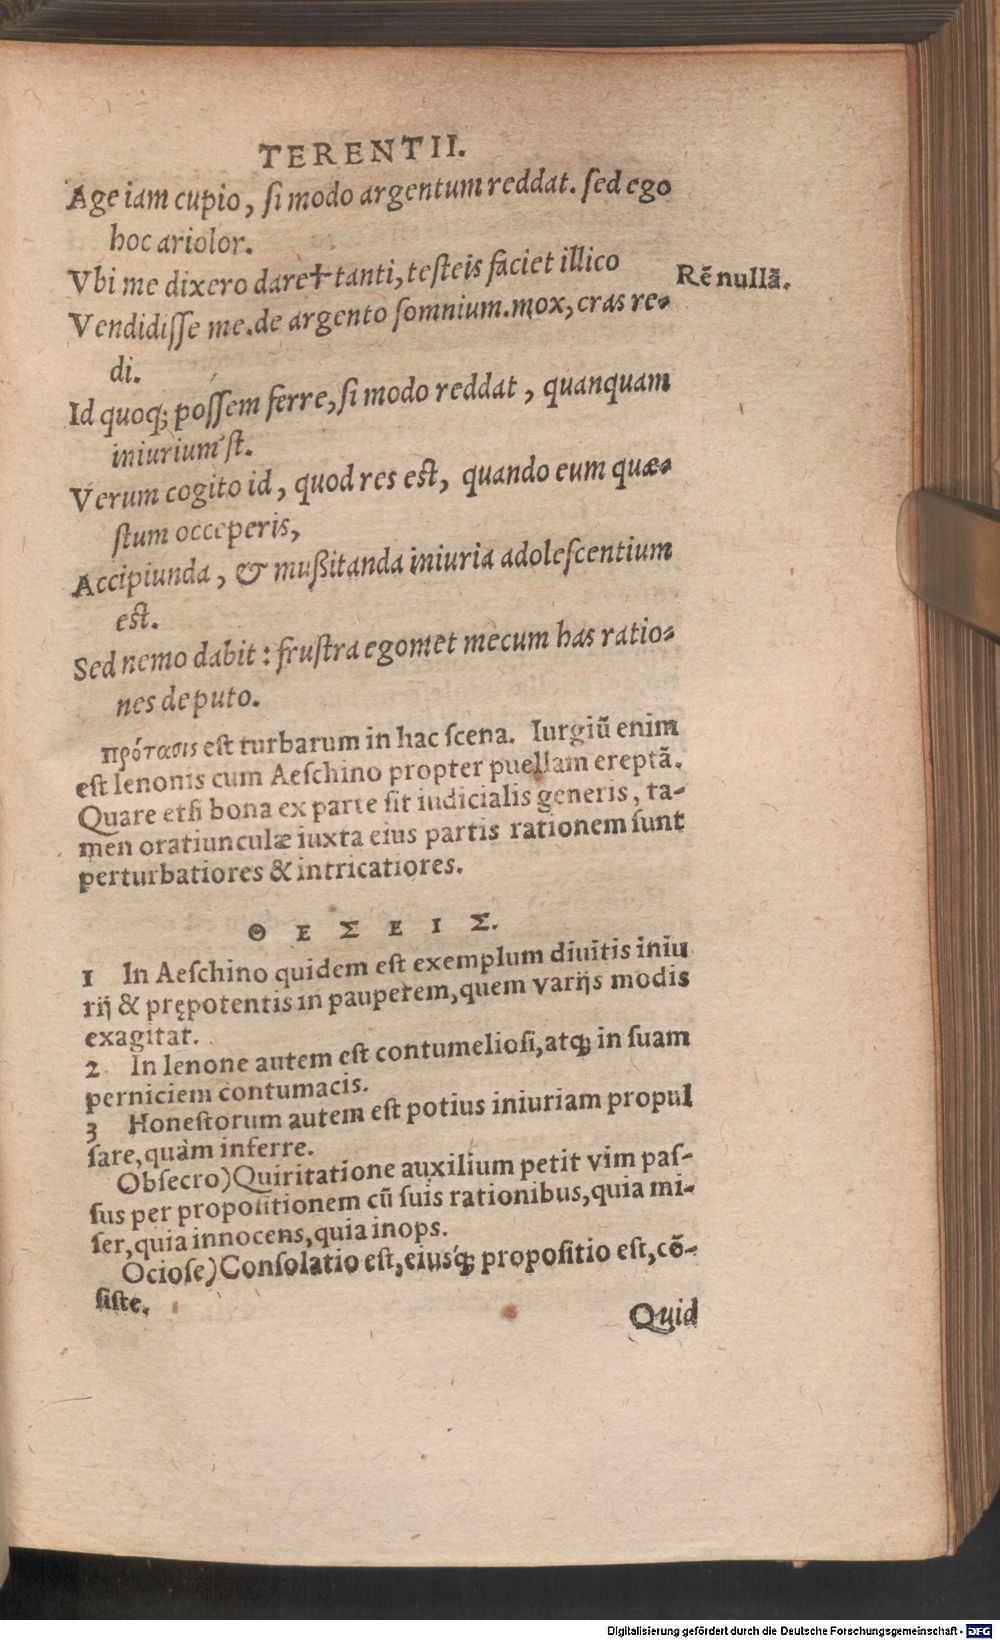 TERENTII.
Age iam cupio, si modo argentum reddat. sed ego
hoc ariolor.
Vbi me dixero dare✝tanti, testeis faciet illico
Rē nullā.
Vendidisse me. de argento somnium. mox, cras re-
di.
Id quoq; possem ferre, si modo reddat, quanquam
iniurium'st.
Verum cogito id, quod res est, quando eum quæ-
stum occeperis,
Accipiunda, & mußitanda iniuria adolescentium
est.
Sed nemo dabit: frustra egomet mecum has ratio-
nes deputo.
πρότασις est turbarum in hac scena. Iurgiū enim
est lenonis cum Aeschino propter puellam ereptā.
Quare etsi bona ex parte sit iudicialis generis, ta-
men oratiunculæ iuxta eius partis rationem sunt
perturbatiores & intricatiores.
ΘΕΣΕΙΣ.
1 In Aeschino quidem est exemplum diuitis iniu
rij & prępotentis in pauperem, quem varijs modis
exagitat.
2 In lenone autem est contumeliosi, atq; in suam
perniciem contumacis.
3 Honestorum autem est potius iniuriam propul
sare, quàm inferre.
Obsecro) Quiritatione auxilium petit vim pas-
sus per propositionem cū suis rationibus, quia mi-
ser, quia innocens, quia inops.
Ociose) Consolatio est, eiusq́; propositio est, cō-
siste.
Quid
Digitalisierung gefördert durch die Deutsche Forschungsgemeinschaft - DFG